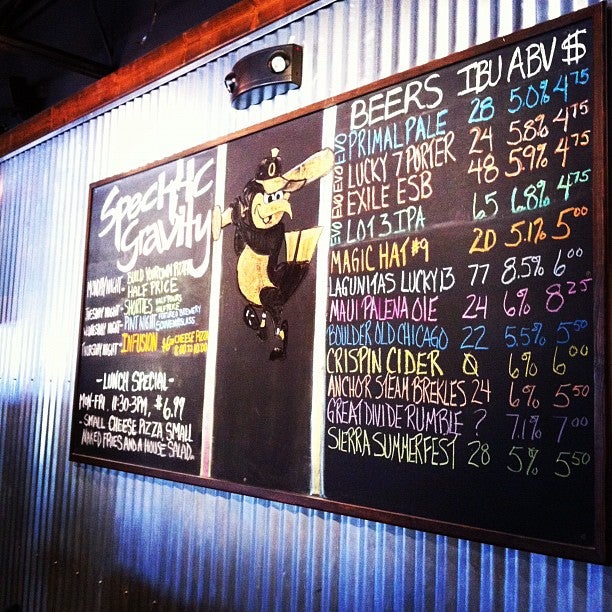 Specific
Gravity
MONDAY NIGHT- BUILD YOUR OWN PIZZA
HALF PRICE
TUESDAY NIGHT- SHORTIES HALF POURS
HALF PRICE
WEDNESDAY NIGHT- PINT NIGHT FEATURED BREWERY
SOUVENIR GLASS
THURSDAY NIGHT- INFUSION $6 CHEESE PIZZA
8:00 TO 10:00
-LUNCH SPECIAL-
MON-FRI. 11:30-3PM, $6.99
-SMALL CHEESE PIZZA, SMALL
NAKED FRIES AND A HOUSE SALAD
BEERS IBU ABV $
EVO PRIMAL PALE 28 5.0% 4.75
EVO LUCKY 7 PORTER 24 5.8% 4.75
EVO EXILE ESB 48 5.9% 4.75
EVO LOT 3 IPA 65 6.8% 4.75
MAGIC HAT #9 20 5.1% 5.00
LAGUNITAS LUCKY 13 77 8.5% 6.00
MAUI PALENA OLE 24 6% 8.25
BOULDER OLD CHICAGO 22 5.5% 5.50
CRISPIN CIDER 0 6% 6.00
ANCHOR STEAM BREKLES 24 6% 5.50
GREAT DIVIDE RUMBLE ? 7.1% 7.00
SIERRA SUMMERFEST 28 5% 5.50